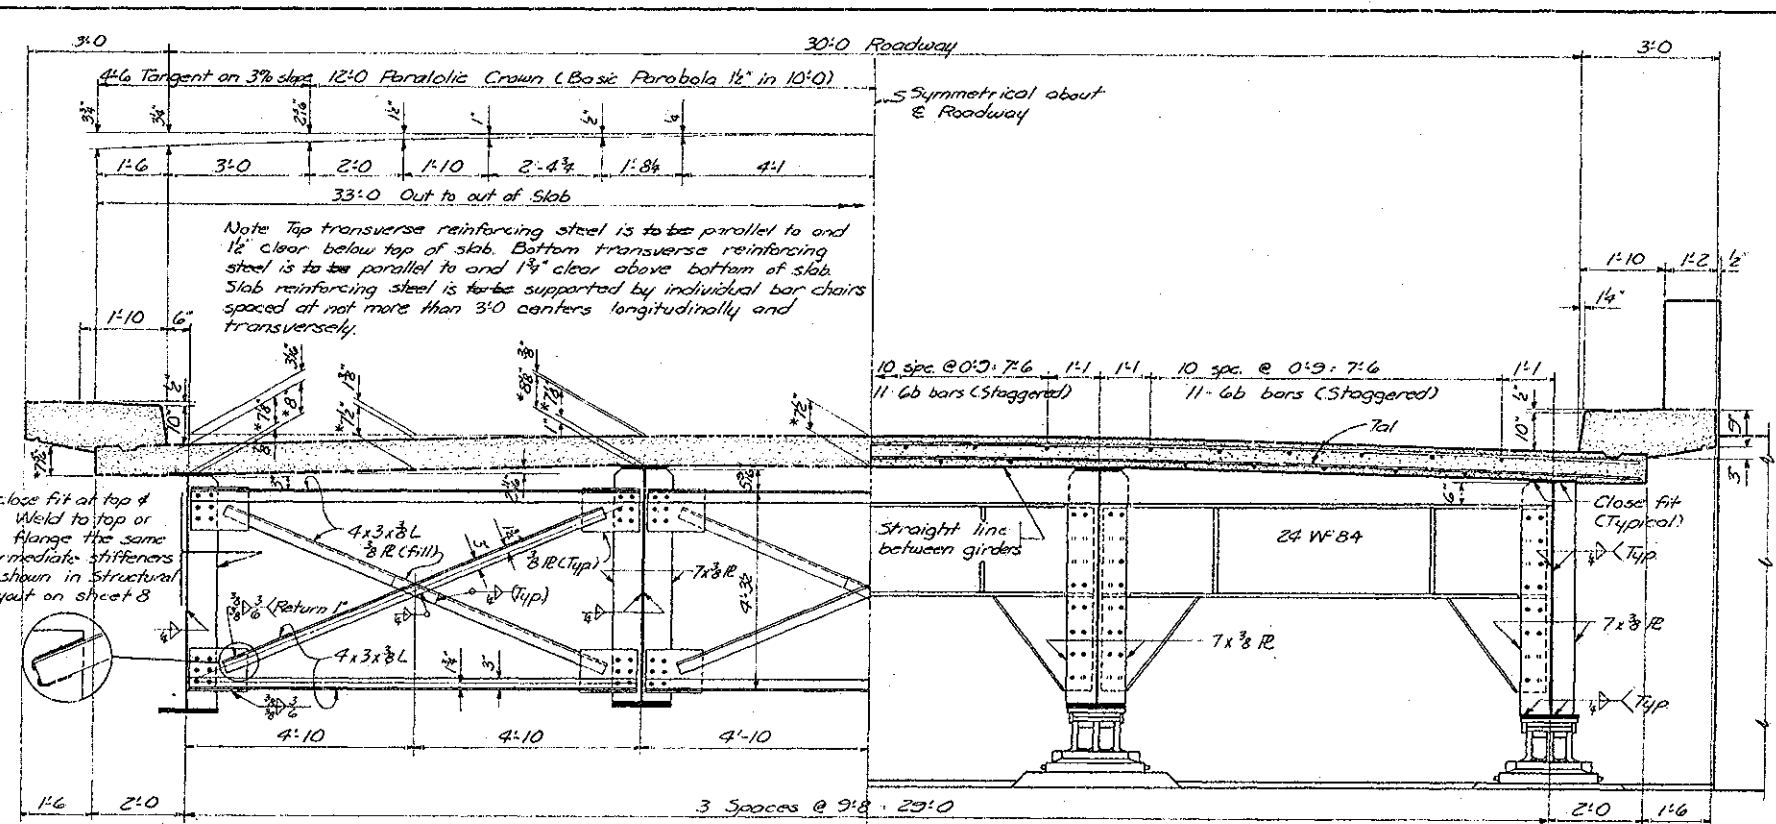 3'-0
30'-0 Roadway
3'-0
4'-6 Tangent on 3% slope
12'-0 Paralolic Crown (Basic Parabola 1½" in 10'-0)
Symmetrical about
℄ Roadway
3¾"
3¼"
1½"
1"
½"
¼"
1'-6
3'-0
2'-0
1'-10
2'-4¾
1'-8¼
4'-1
33'-0 Out to out of Slab
Note Top transverse reinforcing steel is to be parallel to and
1½" clear below top of slab. Bottom transverse reinforcing
steel is to be parallel to and 1¾" clear above bottom of slab.
Slab reinforcing steel is to be supported by individual bar chairs
spaced at not more than 3'-0 centers longitudinally and
transversely.
1'-10
1'-2
½"
1¼"
1'-10
6"
10 spc. @ 0'-9 = 7'-6
1'-1
1'-1
10 spc. @ 0'-9 = 7'-6
1'-1
11-6b bars (Staggered)
11-6b bars (Staggered)
½"
10"
*7⅞"
*8"
*7½"
1⅜"
*8⅛"
*7⅞"
⅜"
1"
*7½"
½"
10"
9"
3"
7a1
*7½"
3"
6"
Close fit at top &
Weld to top or
flange the same
mediate stiffeners
shown in Structural
yout on sheet 8
4x3x⅜ L
⅜ ℞ (fill)
⅜ ℞ (Typ.)
7x⅜ ℞
4'-3½"
(Typ.)
(Return 1"
4x3x⅜ L
1¾"
3"
Straight line
between girders
24 WF 84
Close fit
(Typical)
(Typ.
7x⅜ ℞
7x⅜ ℞
(Typ.
4'-10
4'-10
4'-10
1'-6
2'-0
3 Spaces @ 9'-8 = 29'-0
2'-0
1'-6